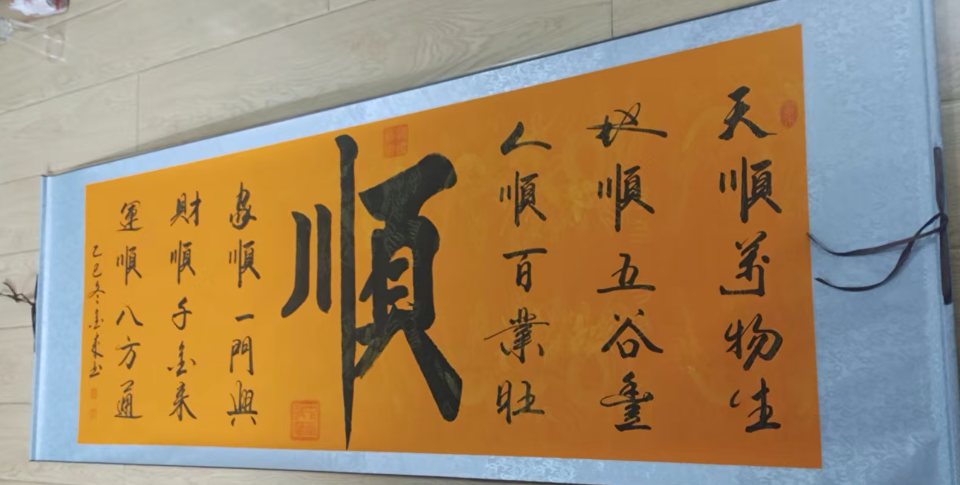 天順萬物生
地順五谷豐
人順百業旺
順
家順一門興
財順千金来
運順八方通
乙巳冬 书